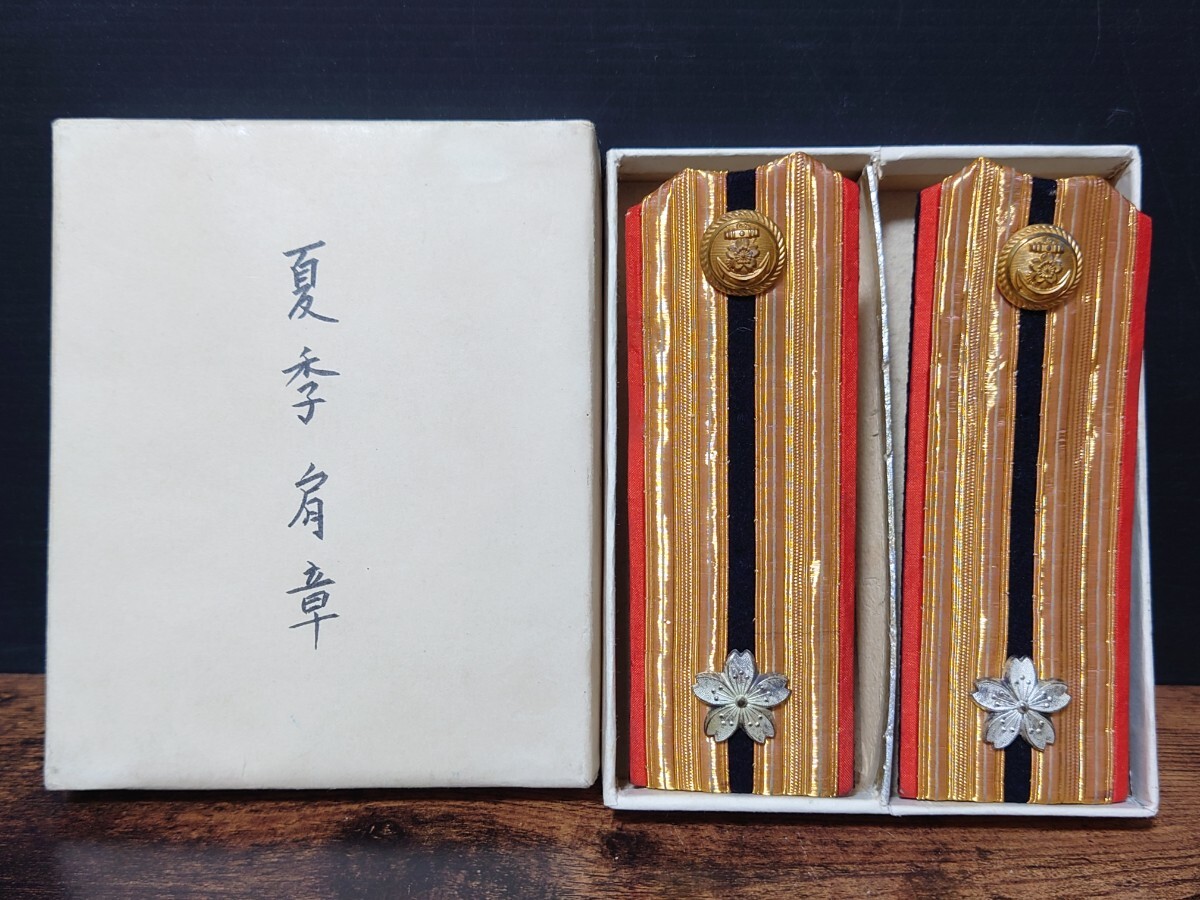 夏季肩章